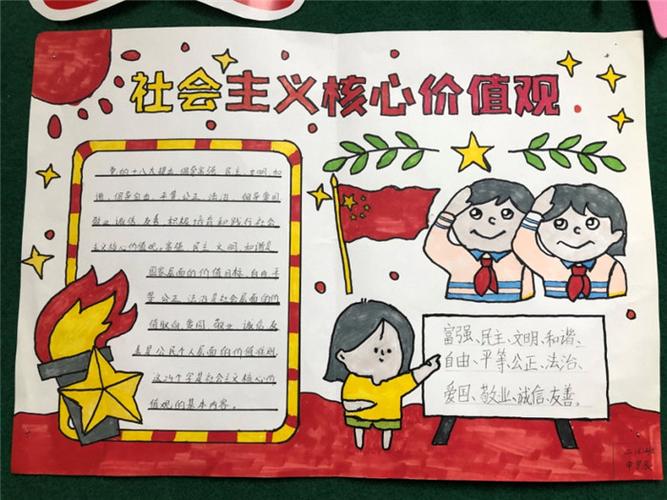 社会主义核心价值观
党的十八大提出,倡导富强、民主、文明、和
谐,倡导自由、平等、公正、法治,倡导爱国、
敬业、诚信、友善,积极培育和践行社会
主义核心价值观。富强、民主、文明、和谐是
国家层面的价值目标,自由、平
等、公正、法治是社会层面的价
值取向,爱国、敬业、诚信、友
善是公民个人层面的价值准则,
这24个字是社会主义核心价
值观的基本内容。
富强、民主、文明、和谐、
自由、平等、公正、法治、
爱国、敬业、诚信、友善。